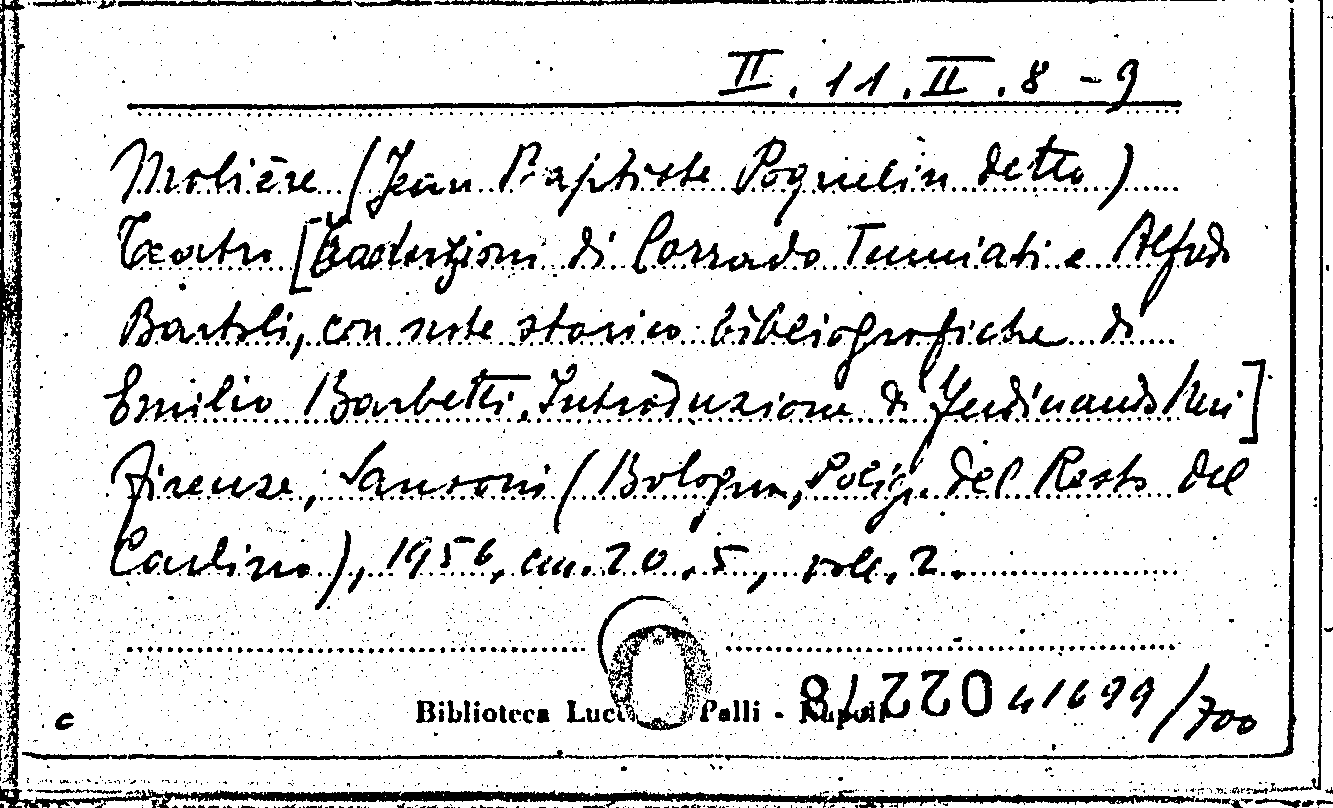 II. 11. II. 8 - 9
Molière (Jean Baptiste Poquelin detto)
Teatro [Traduzioni di Corrado Tumiati e Alfredo
Bartoli, con note storico bibliografiche di
Emilio Barbetti. Introduzione di Ferdinando Neri]
Firenze, Sansoni (Bologna, Polig. del Resto del
Carlino), 1956, cm. 20.5, voll. 2.
Biblioteca Palli - Napoli
c
41699/700